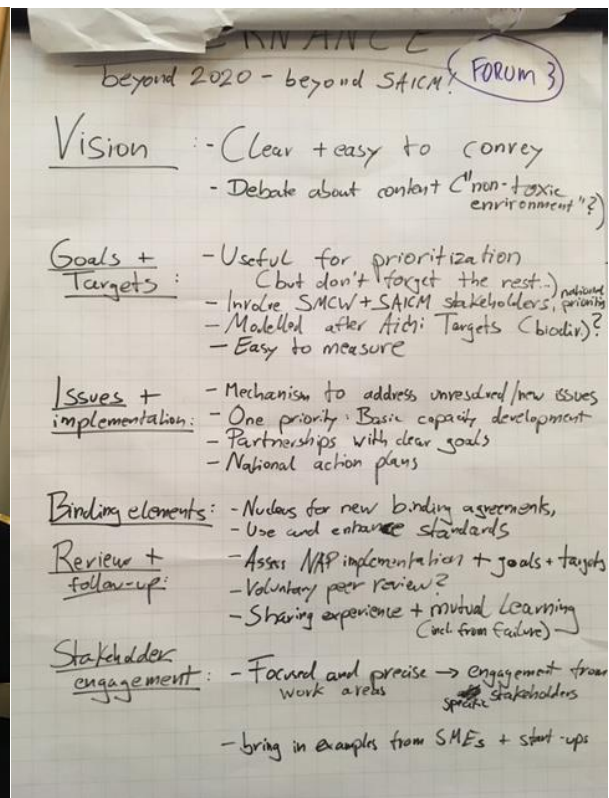 ERNANCE
beyond 2020 - beyond SAICM!
FORUM 3
Vision : - Clear + easy to convey
- Debate about content ("non-toxic
environment"?)
Goals + - Useful for prioritization
Targets : (but don't forget the rest..)
- Involve SMCW + SAICM stakeholders, national priorities
- Modelled after Aichi Targets (biodiv)?
- Easy to measure
Issues + - Mechanism to address unresolved/new issues
implementation: - One priority: Basic capacity development
- Partnerships with clear goals
- National action plans
Binding elements: - Nucleus for new binding agreements,
- Use and enhance standards
Review + - Assess NAP implementation + goals + targets
follow-up: - Voluntary peer review?
- Sharing experience + mutual Learning
(incl from failure)
Stakeholder
engagement: - Focused and precise → engagement from
work areas specific stakeholders
- bring in examples from SMEs + start-ups